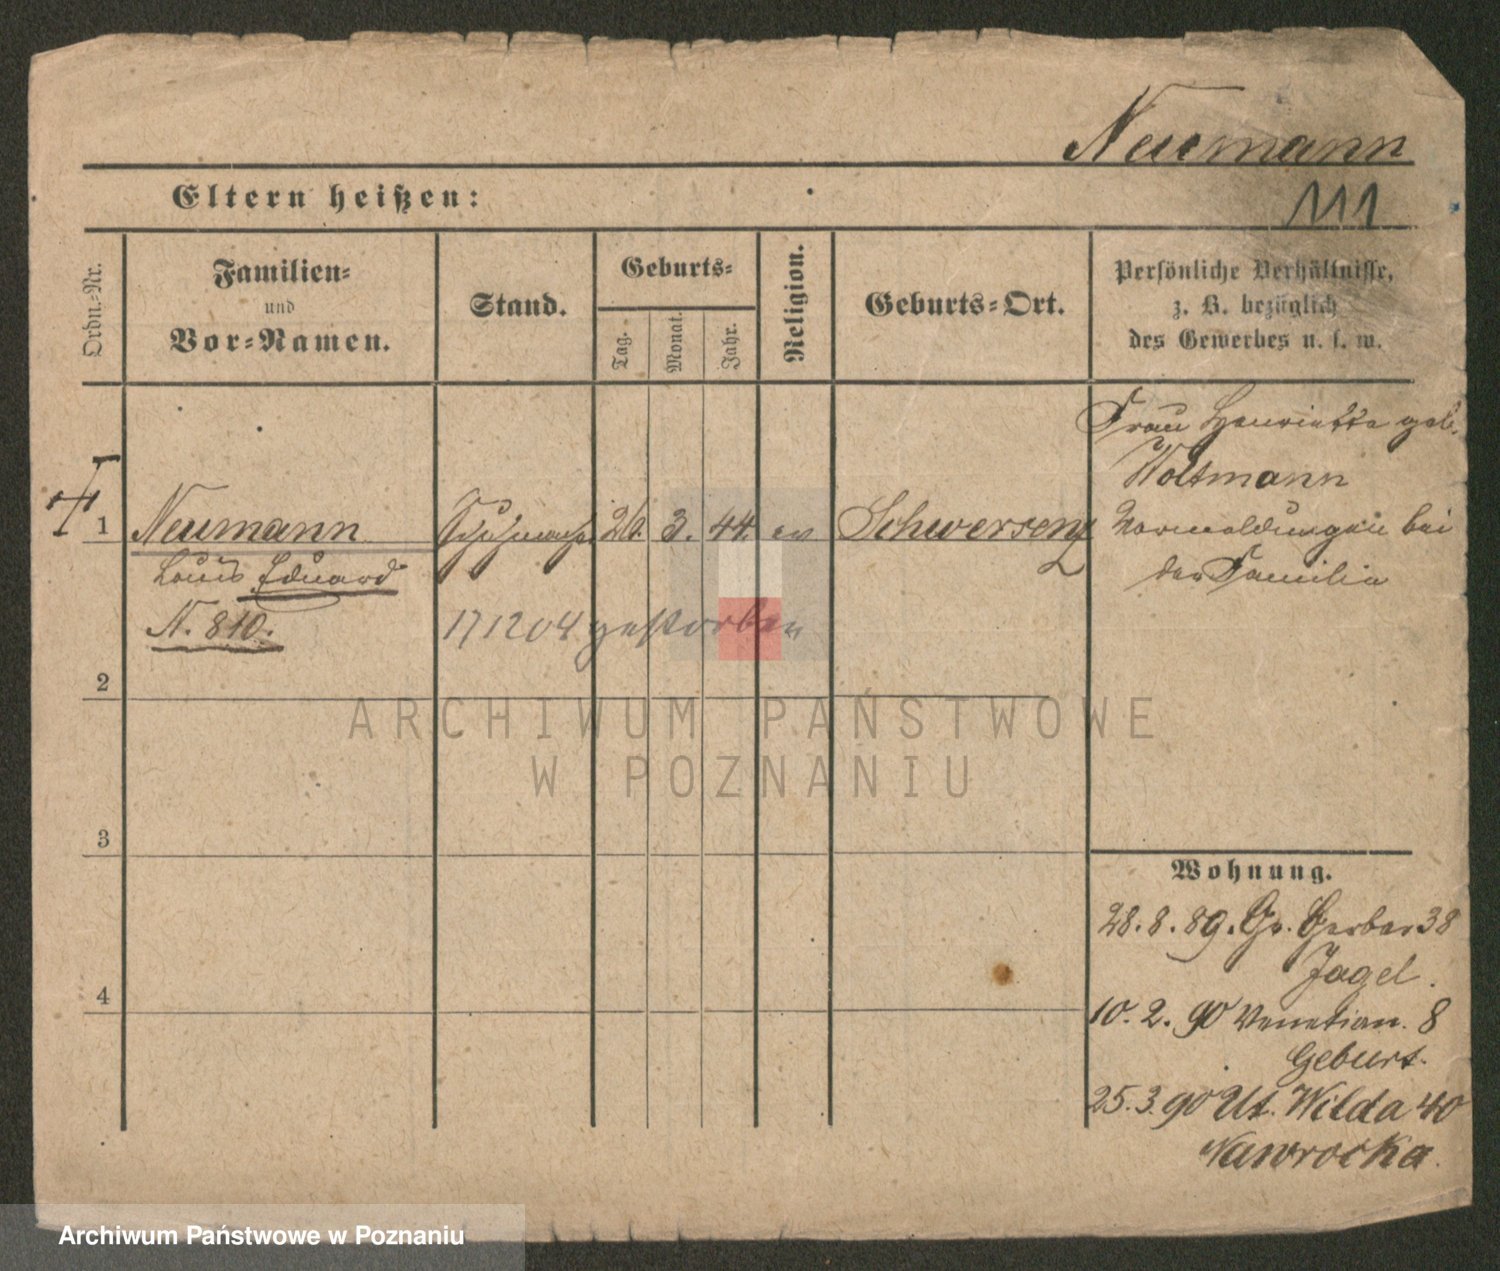 Neumann
111
Eltern heißen:
Ordn.-Nr.
Familien-
und
Vor-Namen.
Stand.
Geburts-
Tag.
Monat.
Jahr.
Religion.
Geburts-Ort.
Persönliche Verhältnisse,
z. B. bezüglich
des Gewerbes u. s. w.
Frau Henriette geb.
Woltmann
1 Neumann 3. 44. ev Schwersenz
Louis Eduard
N. 810.
171204 gestorben
Vormeldungen bei
der Familie
2
3
4
Wohnung.
28. 8. 89. Gr. Gerber 38
Jagel.
10. 2. 90 Venetian. 8
Geburt.
25. 3. 90 Ut. Wilda 40
Nawrocka.
ARCHIWUM PAŃSTWOWE
W POZNANIU
Archiwum Państwowe w Poznaniu